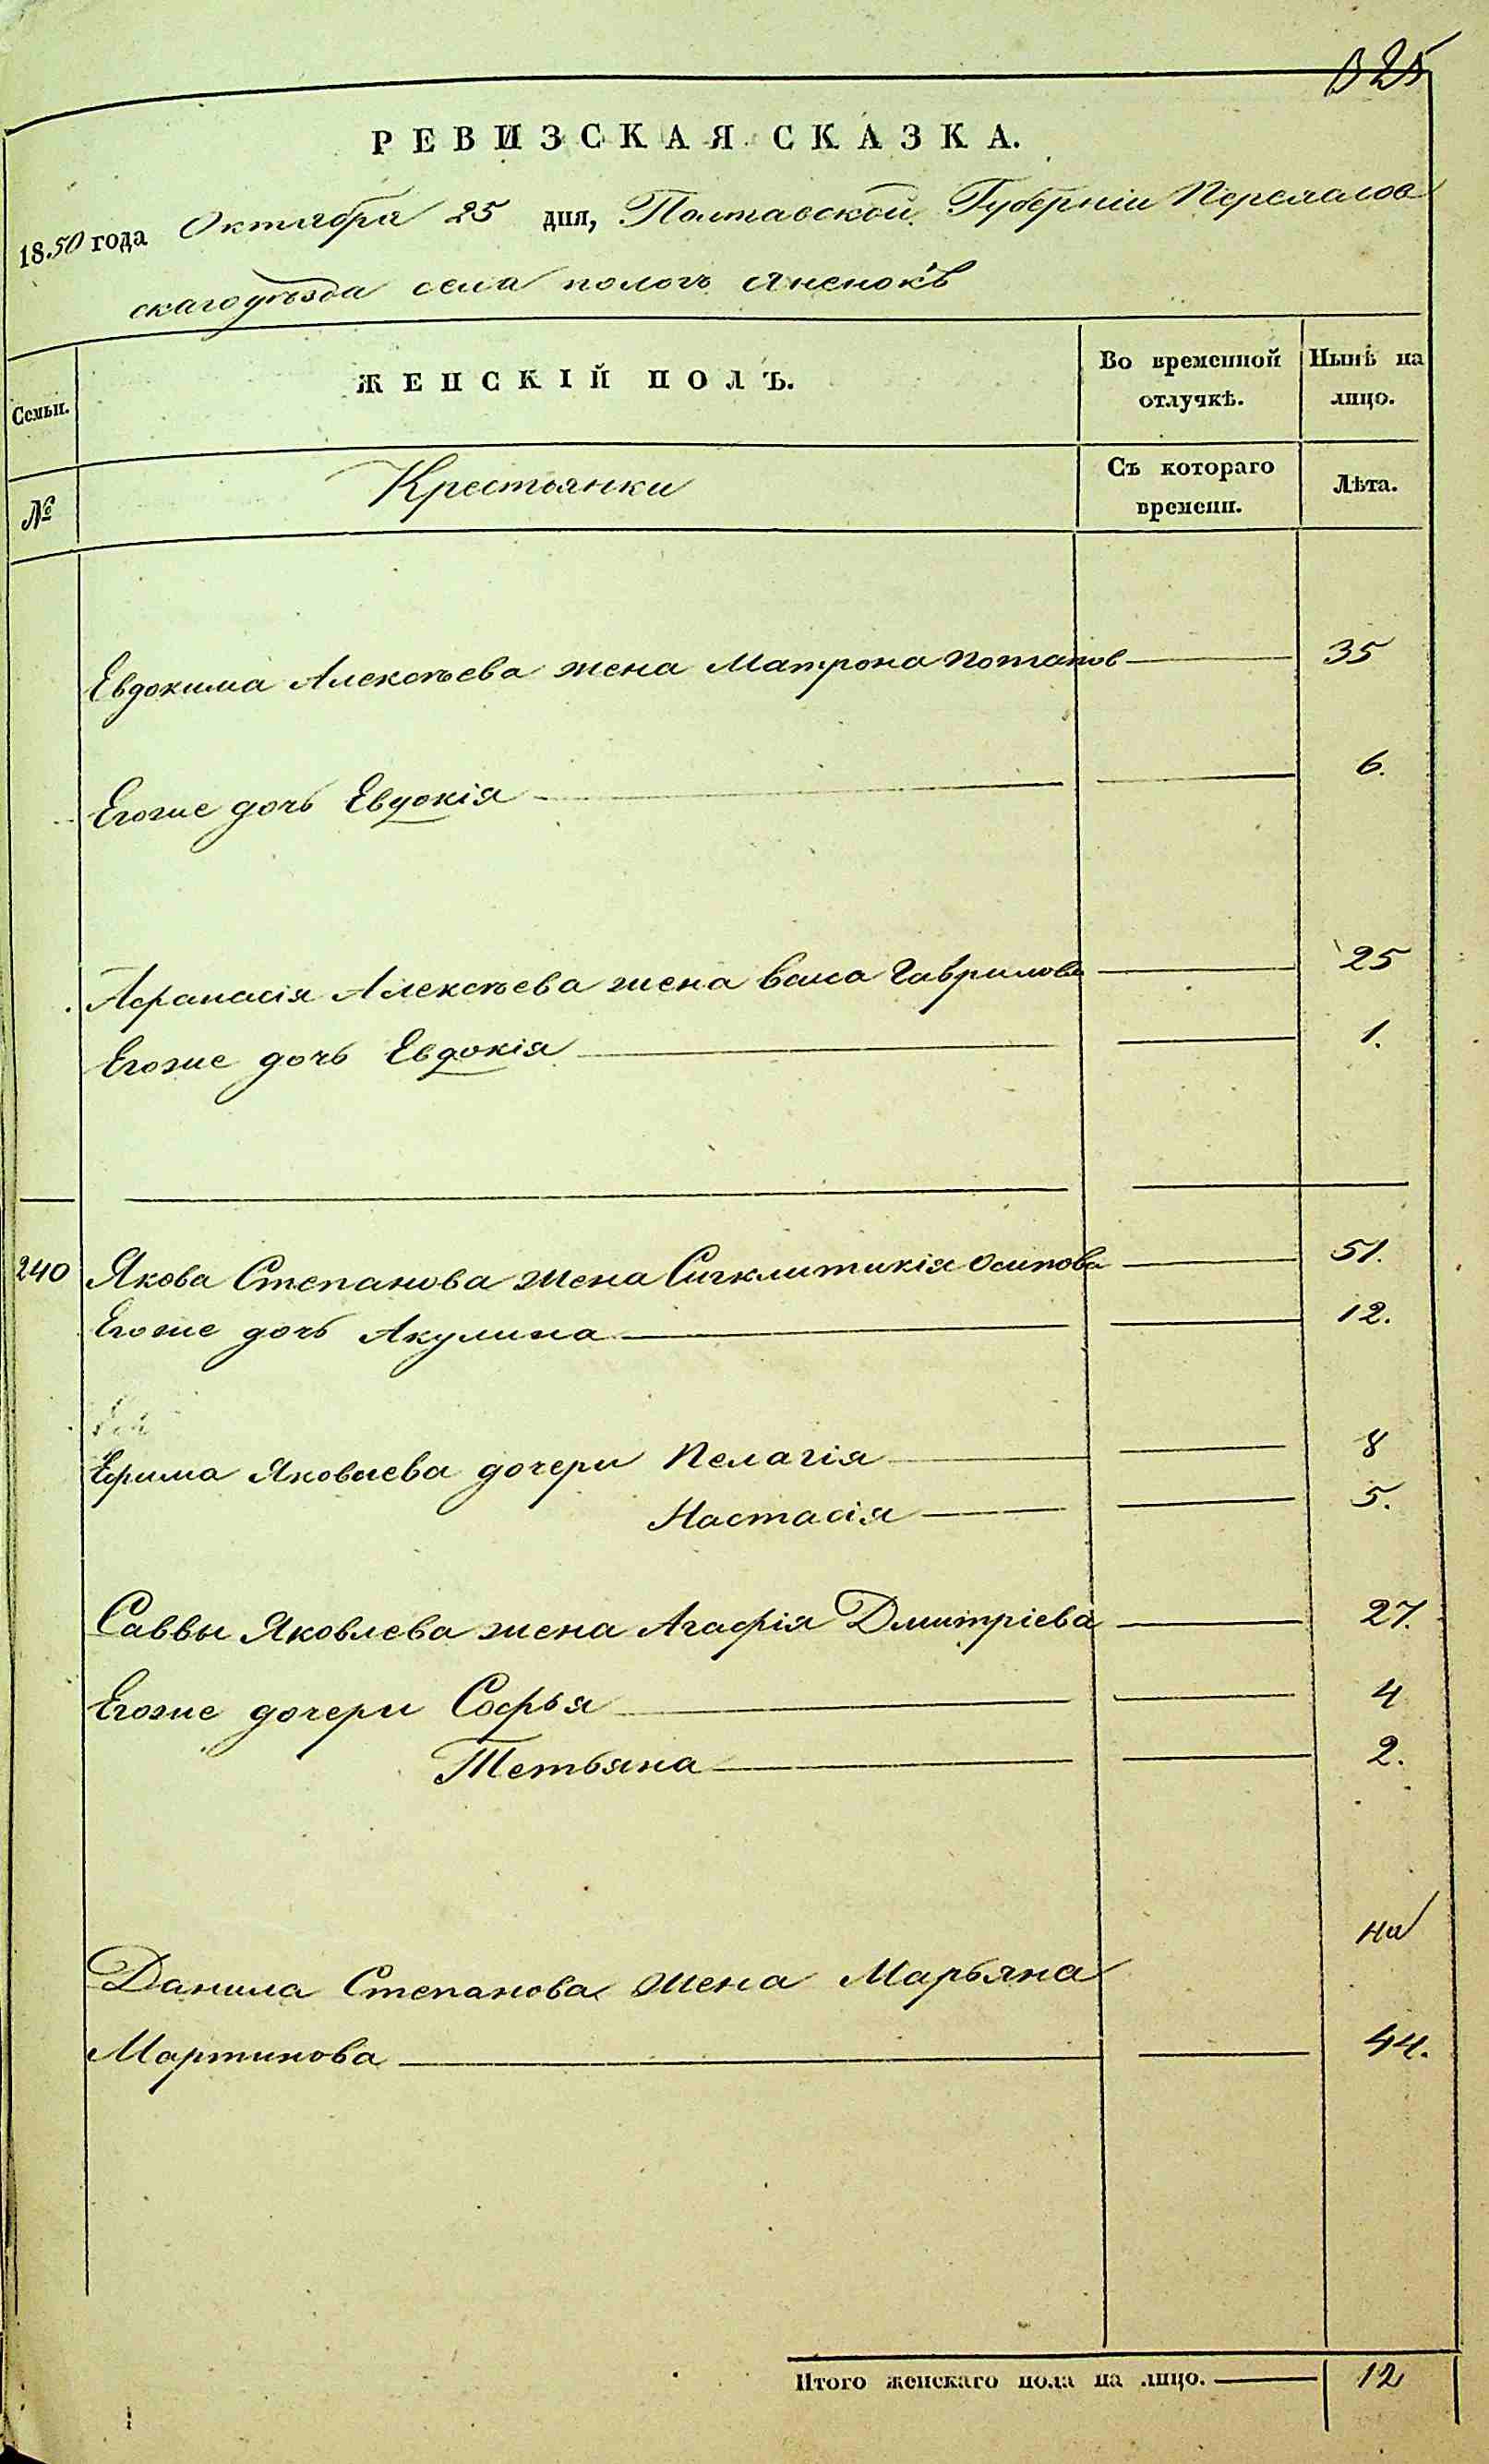 325
РЕВИЗСКАЯ СКАЗКА.
1850 года Октября 25 дня, Полтавской Губерніи Переяслов
скаго уѣзда села пологъ Яненокъ
Семьи.
ЖЕНСКІЙ ПОЛЪ.
Во временной отлучкѣ.
Нынѣ на лицо.
№
Крестьянки
Съ котораго времени.
Лѣта.
Евдокима Алексѣева жена Матрона Потапов 35
Егоже дочь Евдокія 6.
Афанасія Алексѣева жена Васса Гаврилова 25
Егоже дочь Евдокія 1.
240 Якова Степанова жена Сигклитикія Осипова 51.
Егоже дочь Акулина 12.
Ефима Яковлева дочери Пелагія 8
Настасія 5.
Саввы Яковлева жена Агафія Дмитріева 27.
Егоже дочери Софья 4
Тетьяна 2.
Данила Степанова жена Марьяна
Мартинова 44.
Итого женскаго пола на лицо. 12